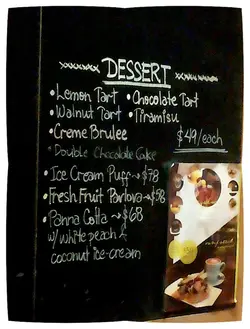 DESSERT
• Lemon Tart • Chocolate Tart
• Walnut Tart • Tiramisu
• Creme Brulee $49/each
• Double Chocolate Cake
• Ice Cream Puff → $78
• Fresh Fruit Pavlova → $58
• Panna Cotta → $68
w/ white peach &
coconut ice-cream